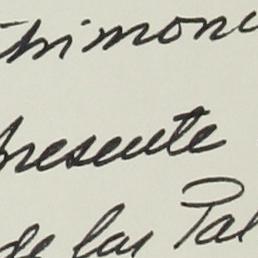 trimoni
presente
de las Pal